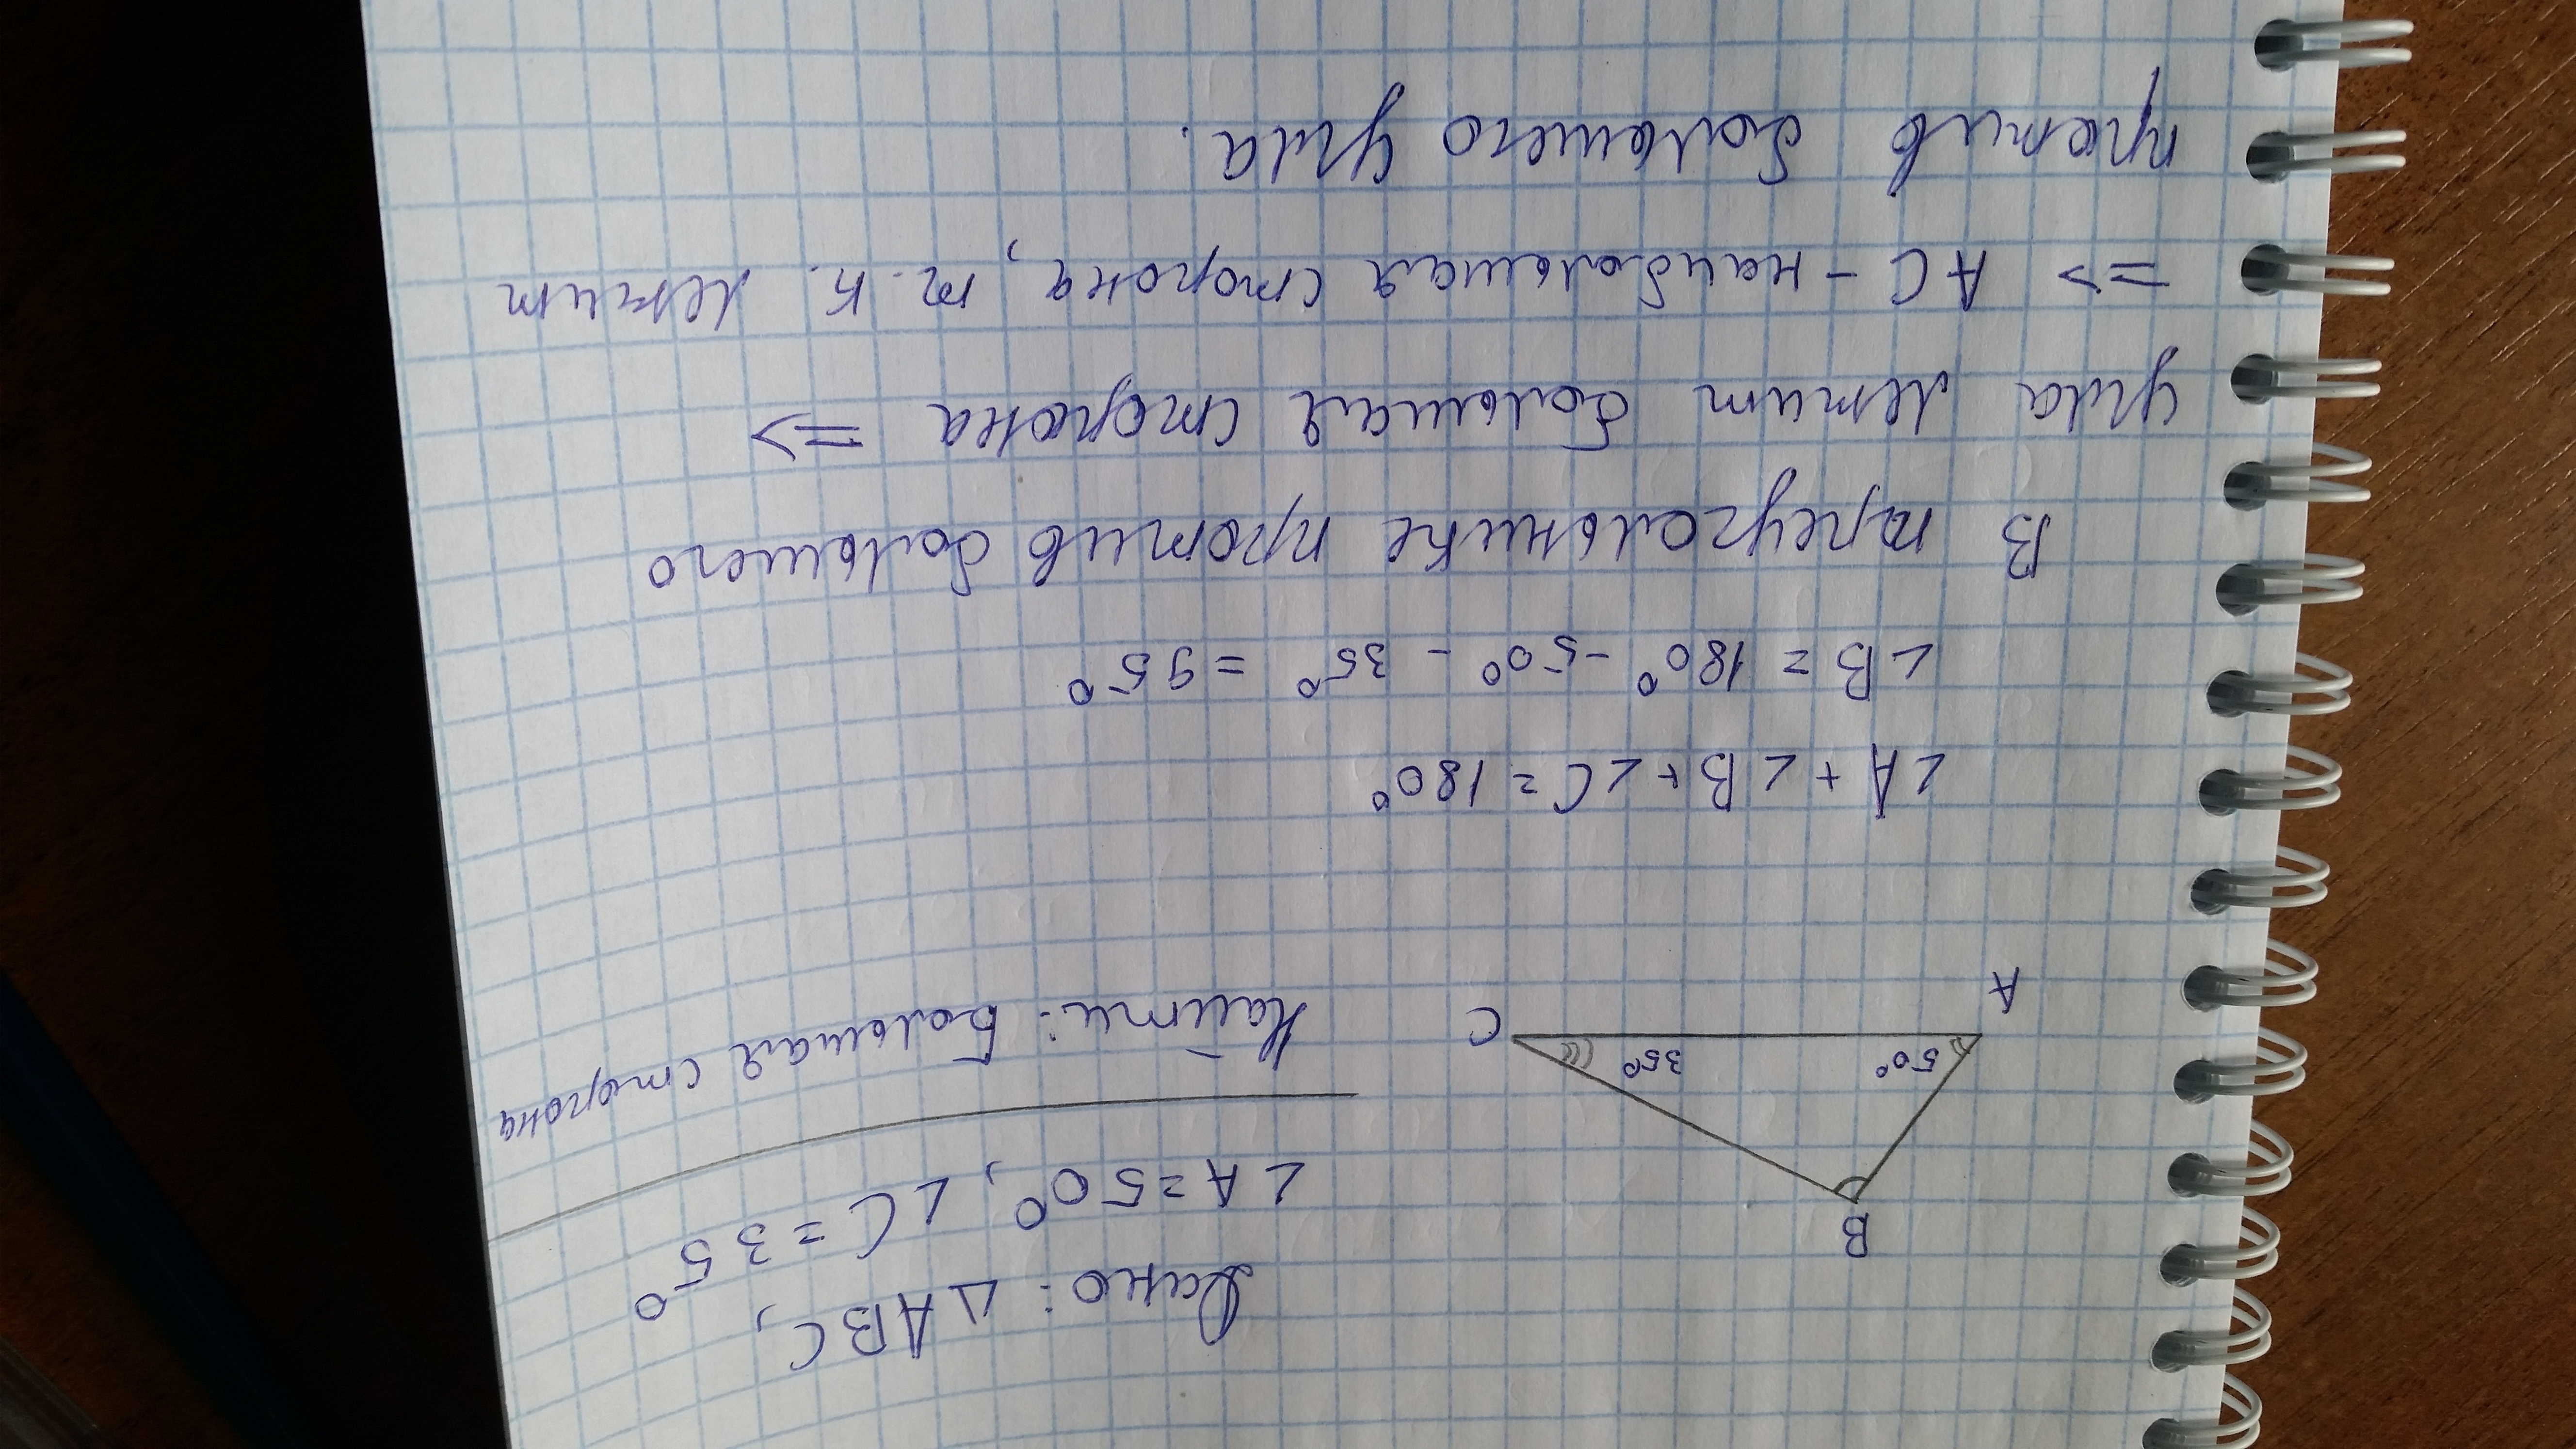 Дано: △ABC,
∠A=50°, ∠C=35°
Найти: Большая сторона
B
50°
35°
A
C
∠A+∠B+∠C=180°
∠B=180°-50°-35°=95°
В треугольнике против большего
угла лежит большая сторона =>
=> AC - наибольшая сторона, т.к. лежит
против большего угла.